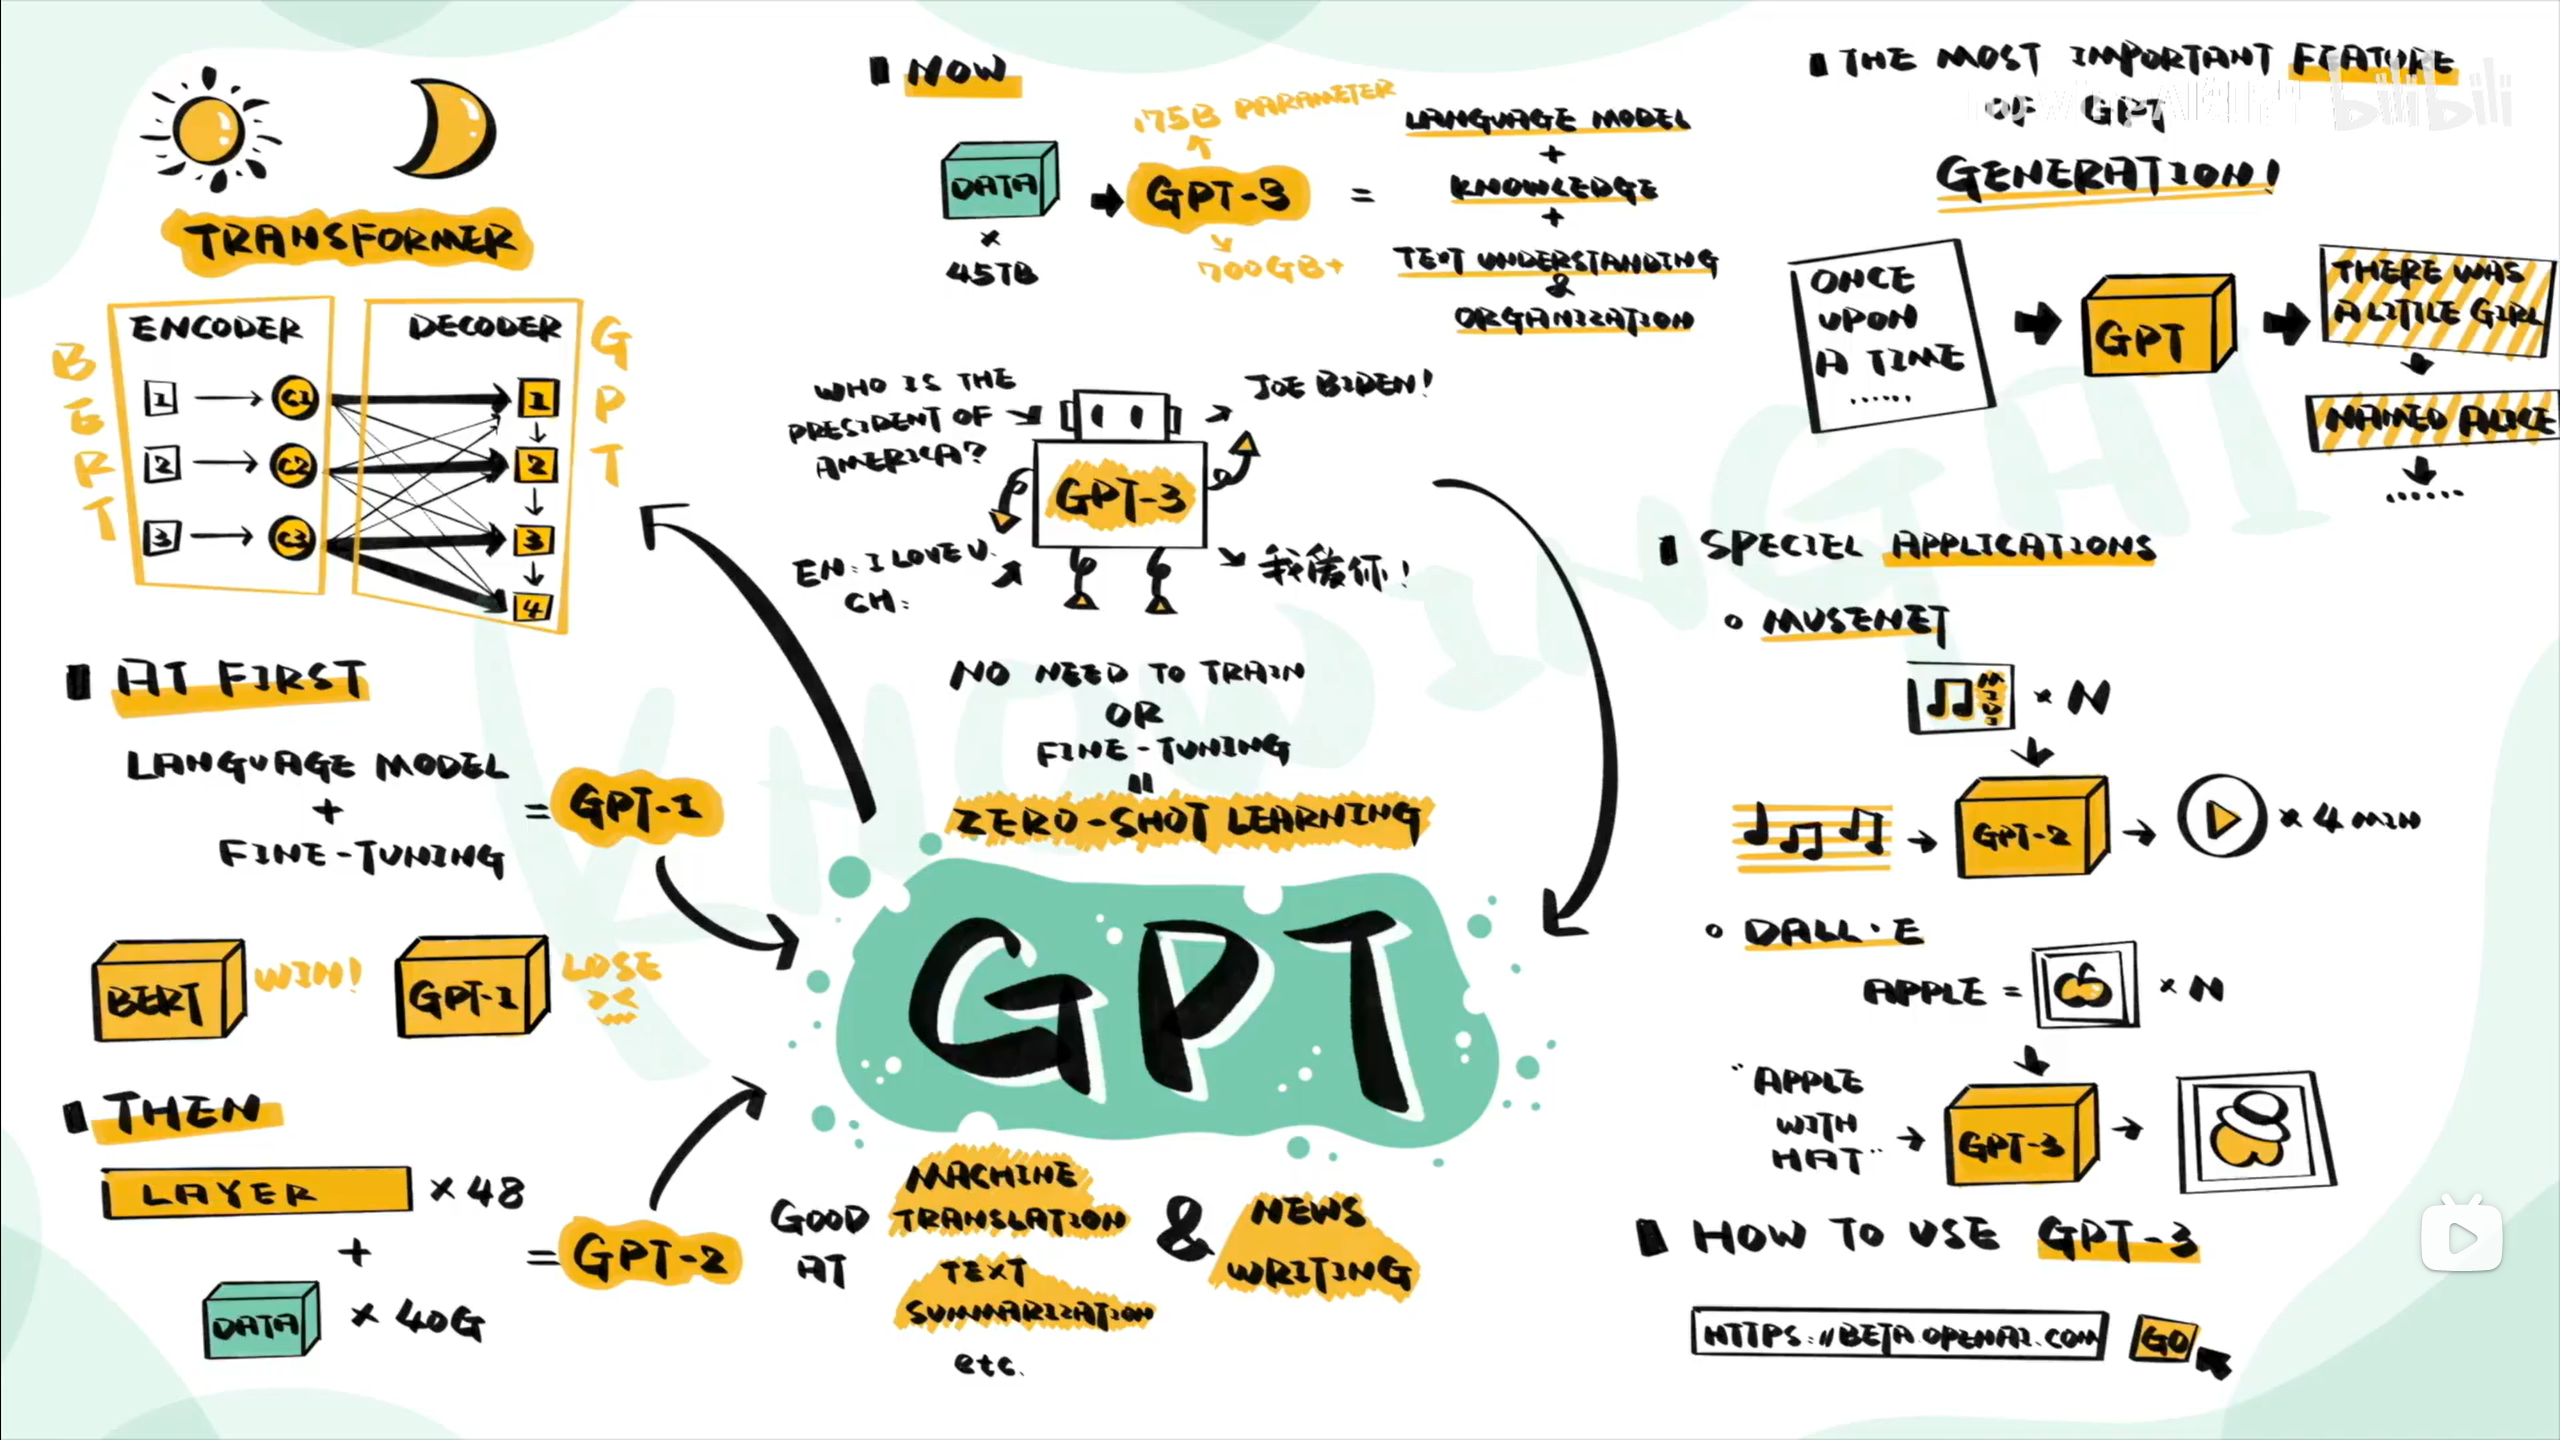 TRANSFORMER
ENCODER
DECODER
BERT
GPT
1
C1
1
2
C2
2
3
C3
3
4
AT FIRST
LANGUAGE MODEL
+
FINE-TUNING
= GPT-1
BERT
WIN!
GPT-1
LOSE
THEN
LAYER × 48
+
DATA × 40G
= GPT-2
NOW
DATA
×
45TB
175B PARAMETER
GPT-3
700GB+
=
LANGUAGE MODEL
+
KNOWLEDGE
+
TEXT UNDERSTANDING
&
ORGANIZATION
WHO IS THE
PRESIDENT OF
AMERICA?
JOE BIDEN!
GPT-3
EN: I LOVE U.
CH:
我爱你!
NO NEED TO TRAIN
OR
FINE-TUNING
=
ZERO-SHOT LEARNING
GPT
GOOD
AT
MACHINE
TRANSLATION
TEXT
SUMMARIZATION
etc.
&
NEWS
WRITING
THE MOST IMPORTANT FEATURE
OF GPT
bilibili
GENERATION!
ONCE
UPON
A TIME
......
GPT
THERE WAS
A LITTLE GIRL
NAMED ALICE
......
SPECIEL APPLICATIONS
MUSENET
MIDI
× N
GPT-2
× 4 MIN
DALL·E
APPLE =
× N
"APPLE
WITH
HAT"
GPT-3
HOW TO USE GPT-3
HTTPS://BETA.OPENAI.COM
GO
KNOWINGAI